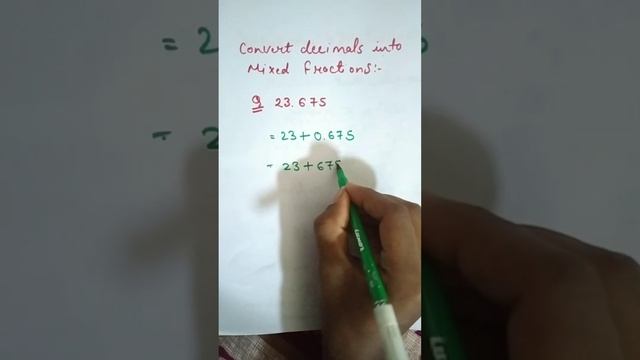 Convert decimals into
Mixed fractions:-
Q 23.675
= 23 + 0.675
= 23 + 675